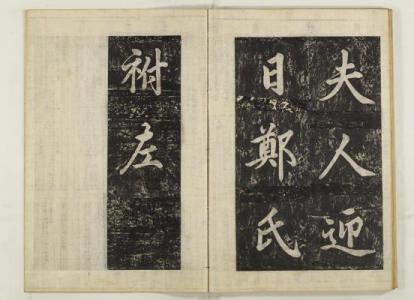 夫人迎
日鄭氏
祔左